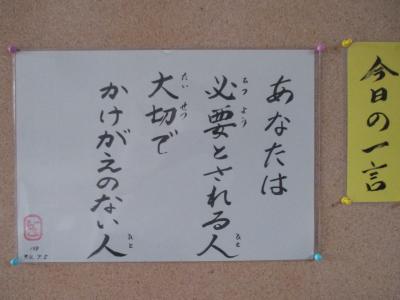 今日の一言
あなたは
必要とされる人
ひつよう ひと
大切で
たいせつ
かけがえのない人
ひと